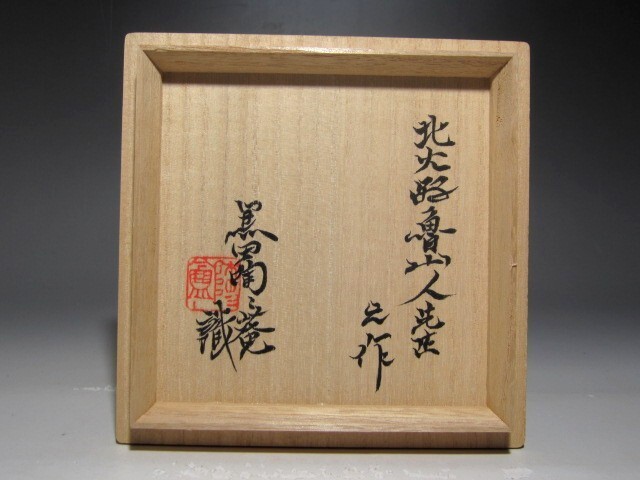 北大路魯山人先生
之作
黒田陶々菴
識